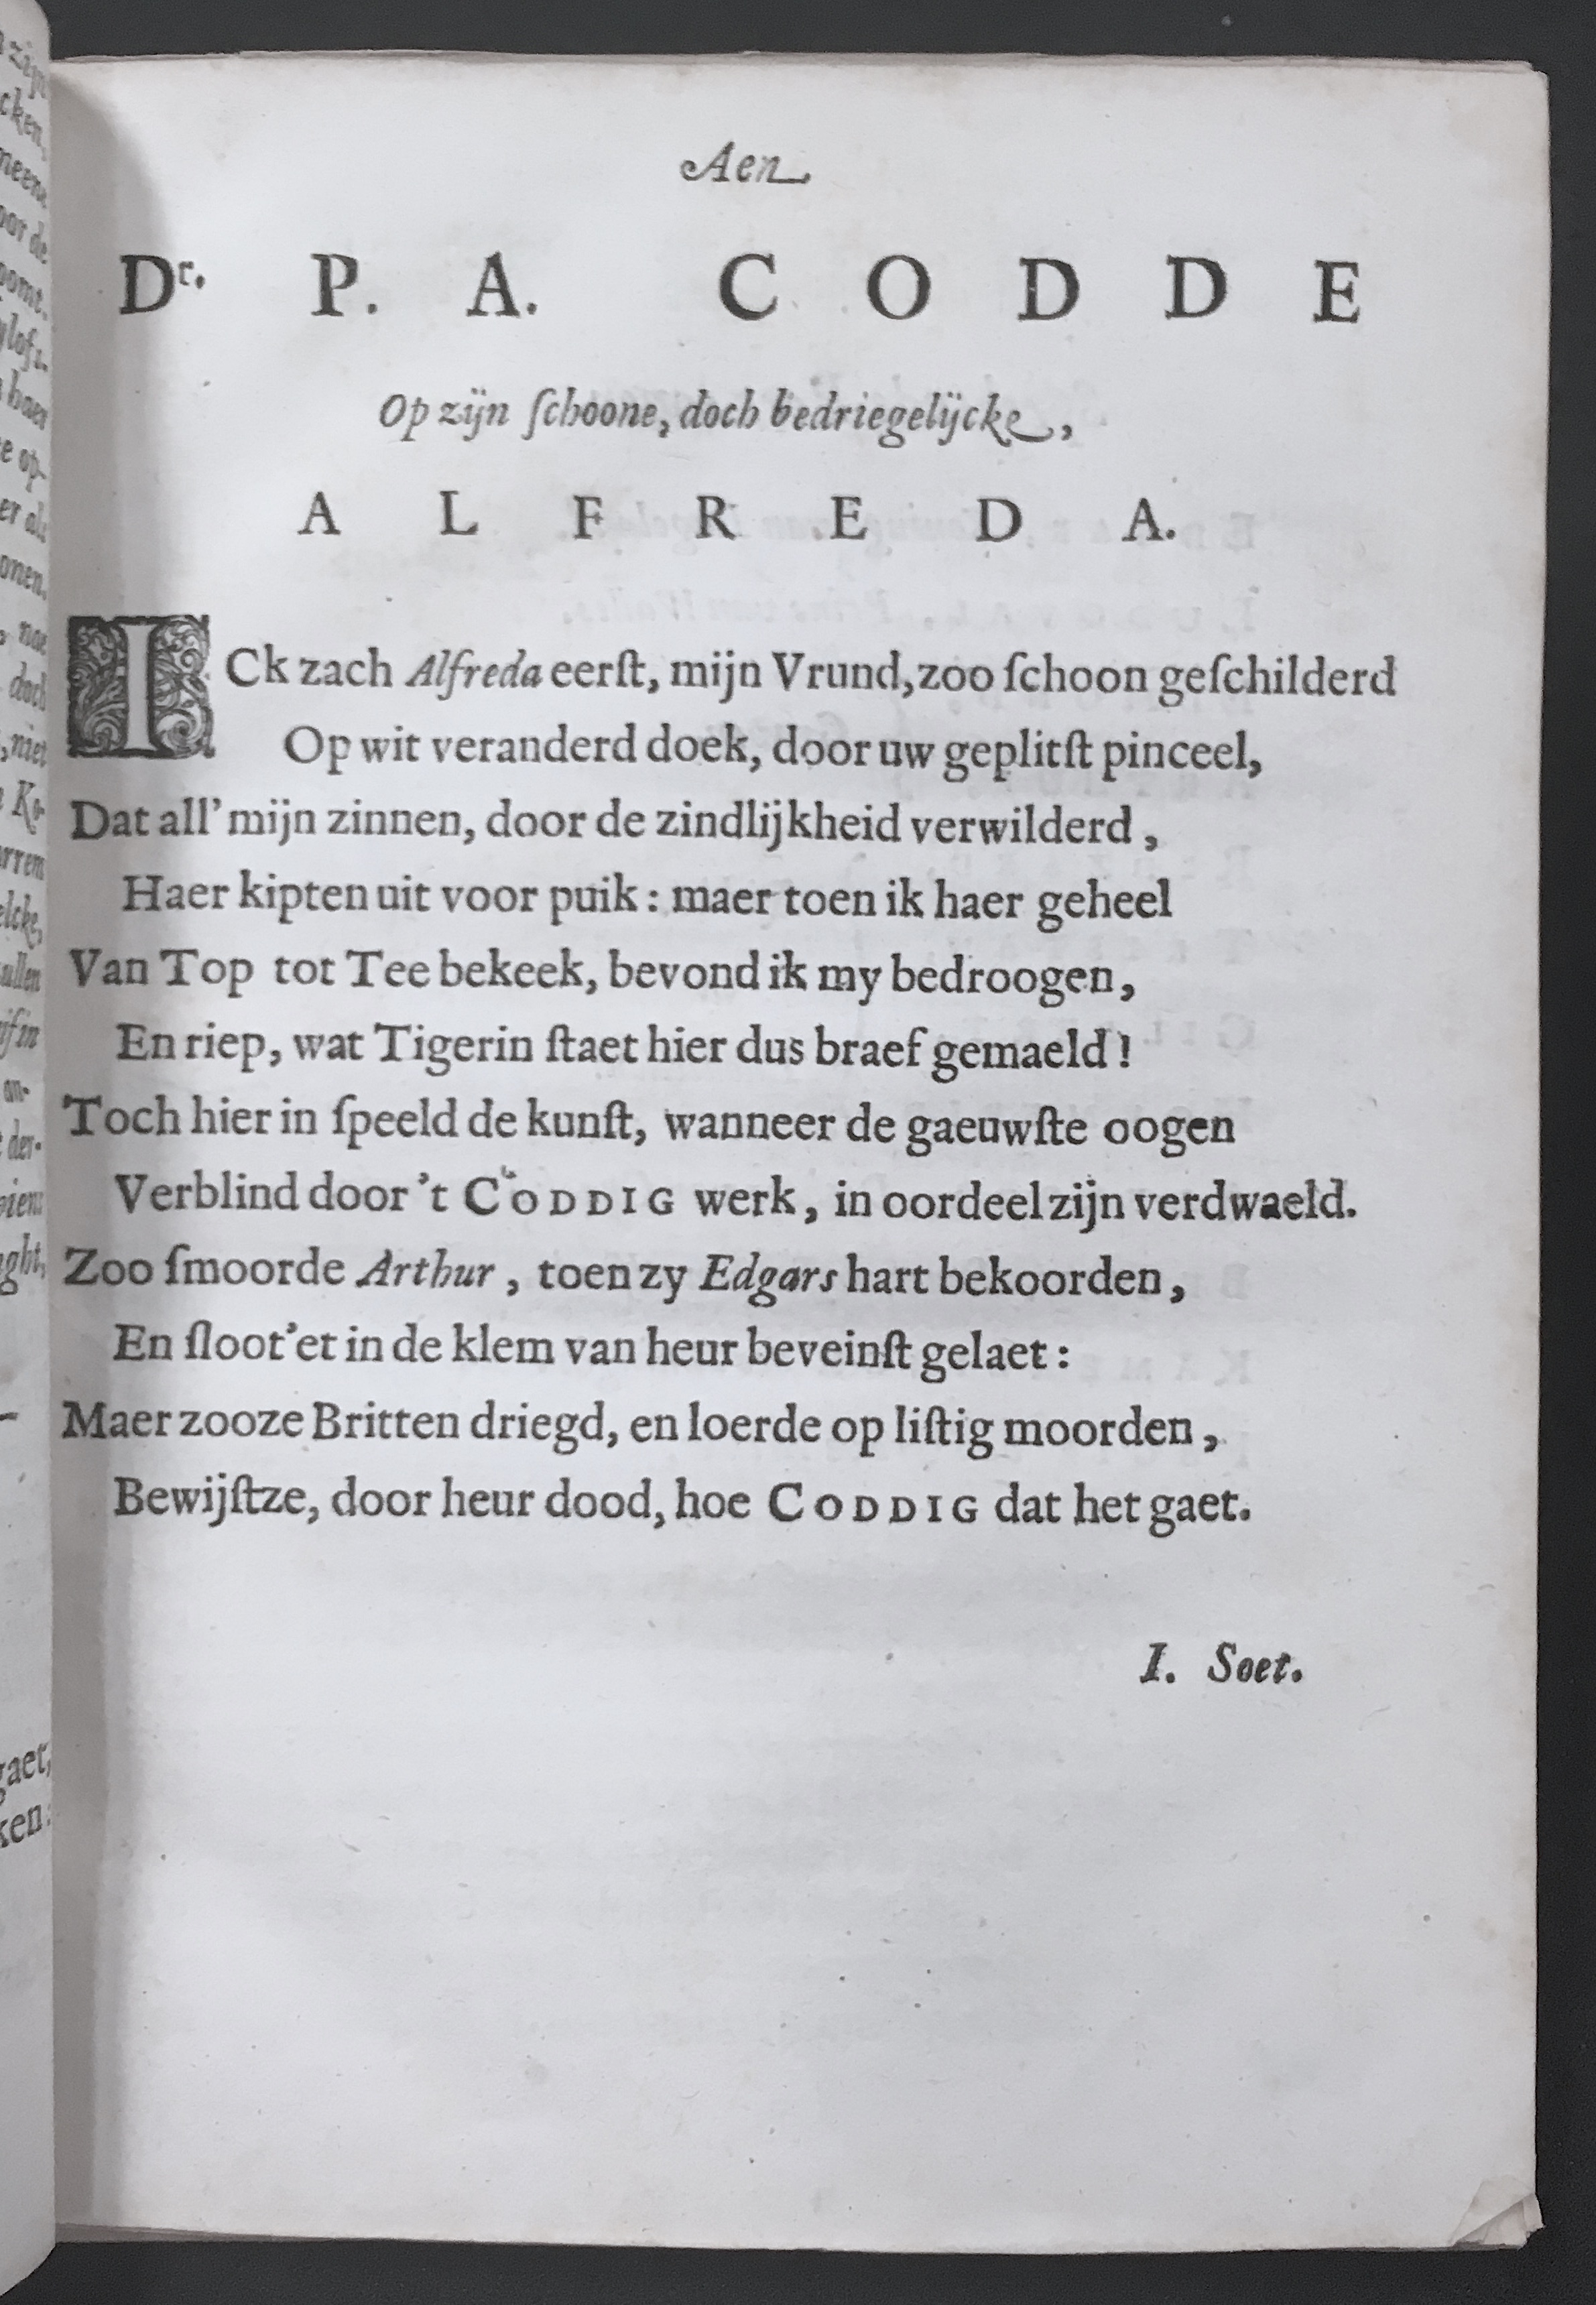 Aen
Dr. P. A. CODDE
Op zijn ſchoone, doch bedriegelijcke,
ALFREDA.
ICk zach Alfreda eerſt, mijn Vrund, zoo ſchoon geſchilderd
Op wit veranderd doek, door uw geplitſt pinceel,
Dat all' mijn zinnen, door de zindlijkheid verwilderd,
Haer kipten uit voor puik: maer toen ik haer geheel
Van Top tot Tee bekeek, bevond ik my bedroogen,
En riep, wat Tigerin ſtaet hier dus braef gemaeld!
Toch hier in ſpeeld de kunſt, wanneer de gaeuwſte oogen
Verblind door 't CODDIG werk, in oordeel zijn verdwaeld.
Zoo ſmoorde Arthur, toen zy Edgars hart bekoorden,
En ſloot'et in de klem van heur beveinſt gelaet:
Maer zooze Britten driegd, en loerde op liſtig moorden,
Bewijſtze, door heur dood, hoe CODDIG dat het gaet.
I. Soet.